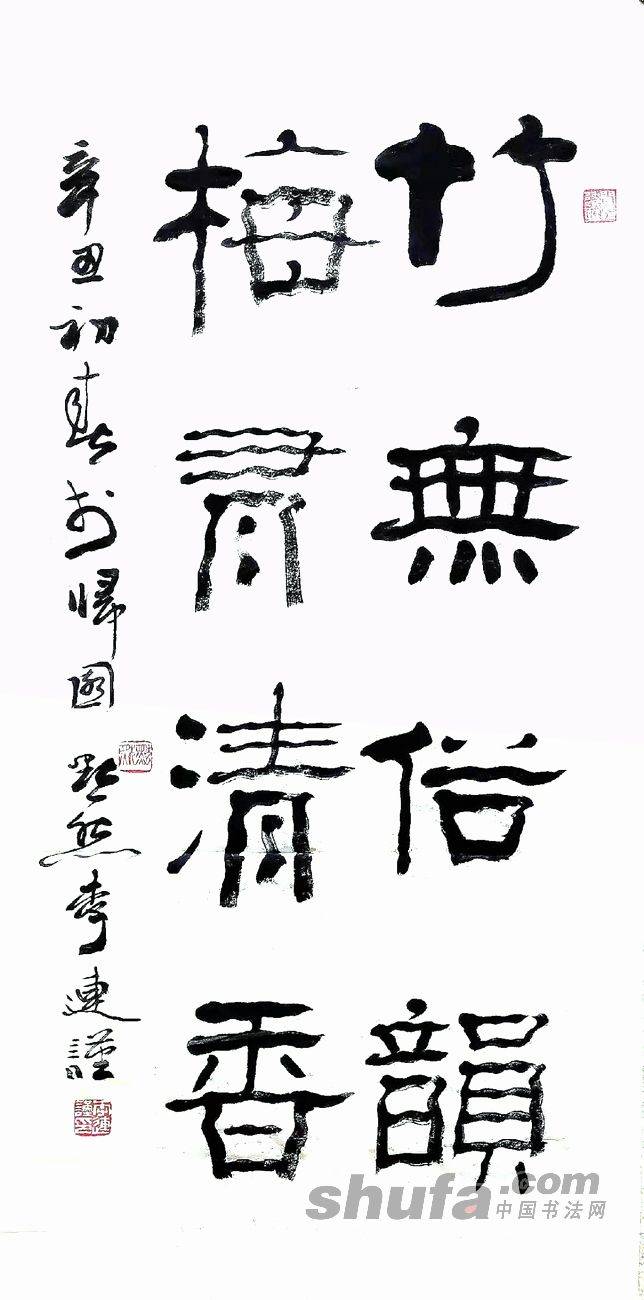 竹無俗韻
梅有清香
辛丑初春於歸園 默然李連謹
shufa.com
中国书法网